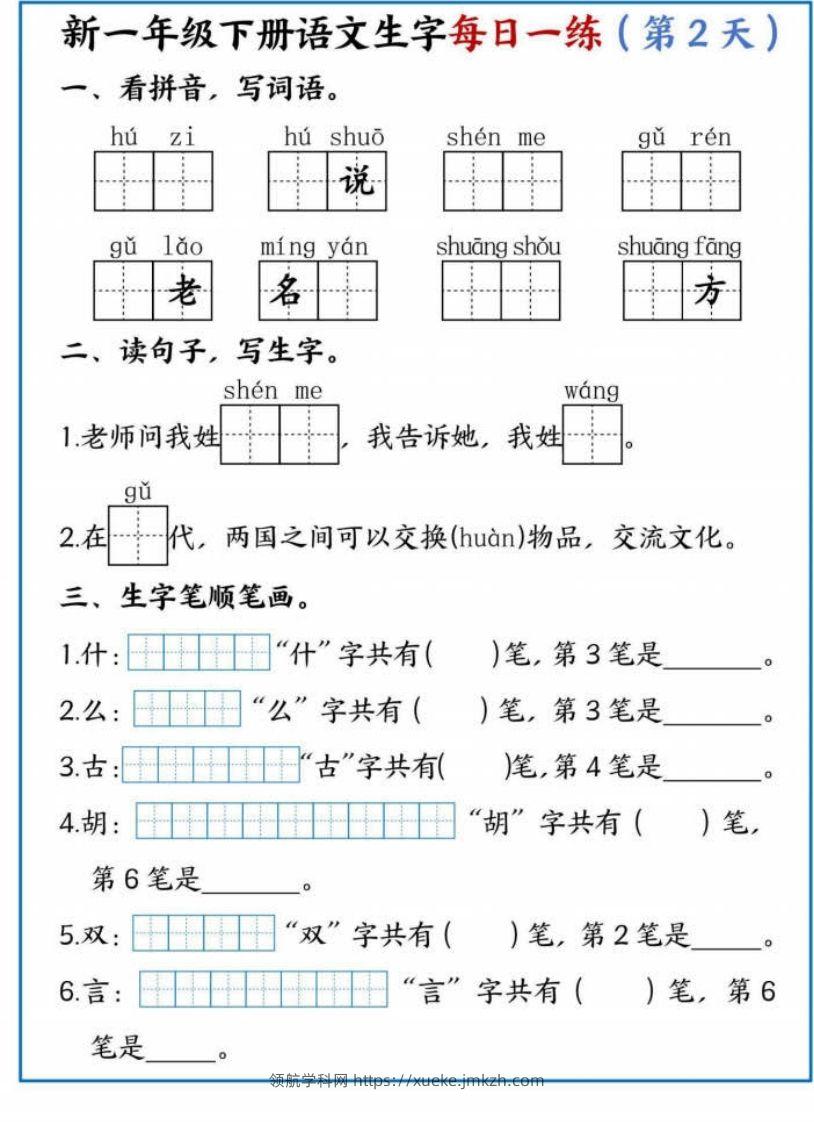 新一年级下册语文生字每日一练（第2天）
一、看拼音，写词语。
hú zi hú shuō shén me gǔ rén
说
gǔ lǎo míng yán shuāng shǒu shuāng fāng
老 名 方
二、读句子，写生字。
shén me wáng
1.老师问我姓，我告诉她，我姓。
gǔ
2.在代，两国之间可以交换(huàn)物品，交流文化。
三、生字笔顺笔画。
1.什：“什”字共有( )笔，第3笔是______。
2.么：“么”字共有( )笔，第3笔是______。
3.古：“古”字共有( )笔，第4笔是______。
4.胡：“胡”字共有( )笔，
第6笔是______。
5.双：“双”字共有( )笔，第2笔是____。
6.言：“言”字共有( )笔，第6
笔是____。
领航学科网 https://xueke.jmkzh.com